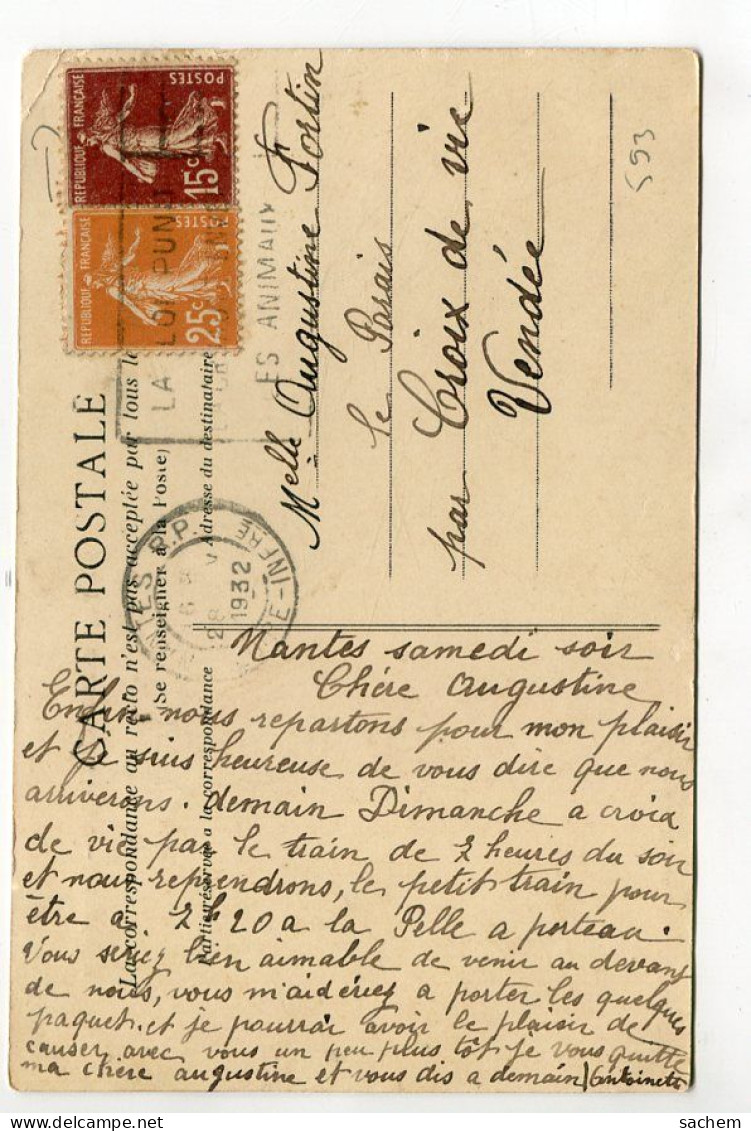 CARTE POSTALE
La correspondance au recto n'est pas acceptée par tous le
(Se renseigner à la Poste)
Partie réservée a la correspondance
Adresse du destinataire
REPUBLIQUE FRANÇAISE
POSTES
15c
REPUBLIQUE FRANÇAISE
POSTES
25c
LA LOI PUNI
ES ANIMAUX
NTES R.P.
28 V
1932
E-INFRE
593
Melle Augustine Fortin
le Parais
par Croix de vie
Vendée
Nantes samedi soir
Chère augustine
Enfin nous repartons pour mon plaisir
et je suis heureuse de vous dire que nous
arriverons. demain Dimanche a croix
de vie par le train de 2 heures du soir
et nous reprendrons, le petit train pour
être a 2h20 a la Pelle a porteau.
Vous seriez bien aimable de venir au devant
de nous, vous m'aidériez a porter les quelques
paquet. et je pourrai avoir le plaisir de
causer avec vous un peu plus tôt je vous quitte
ma chère augustine et vous dis a demain) Antoinette
delcampe.net
sachem